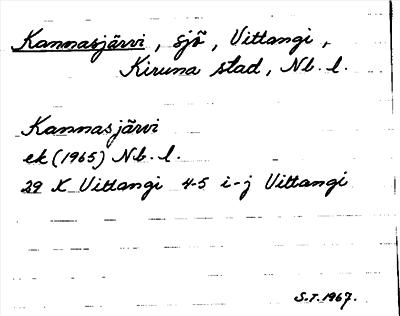 Kannasjärvi, sjö, Vittangi,
Kiruna stad, Nb. l.
Kannasjärvi
ek (1965) Nb. l.
29 K Vittangi 4-5 i-j Vittangi
S.T. 1967.